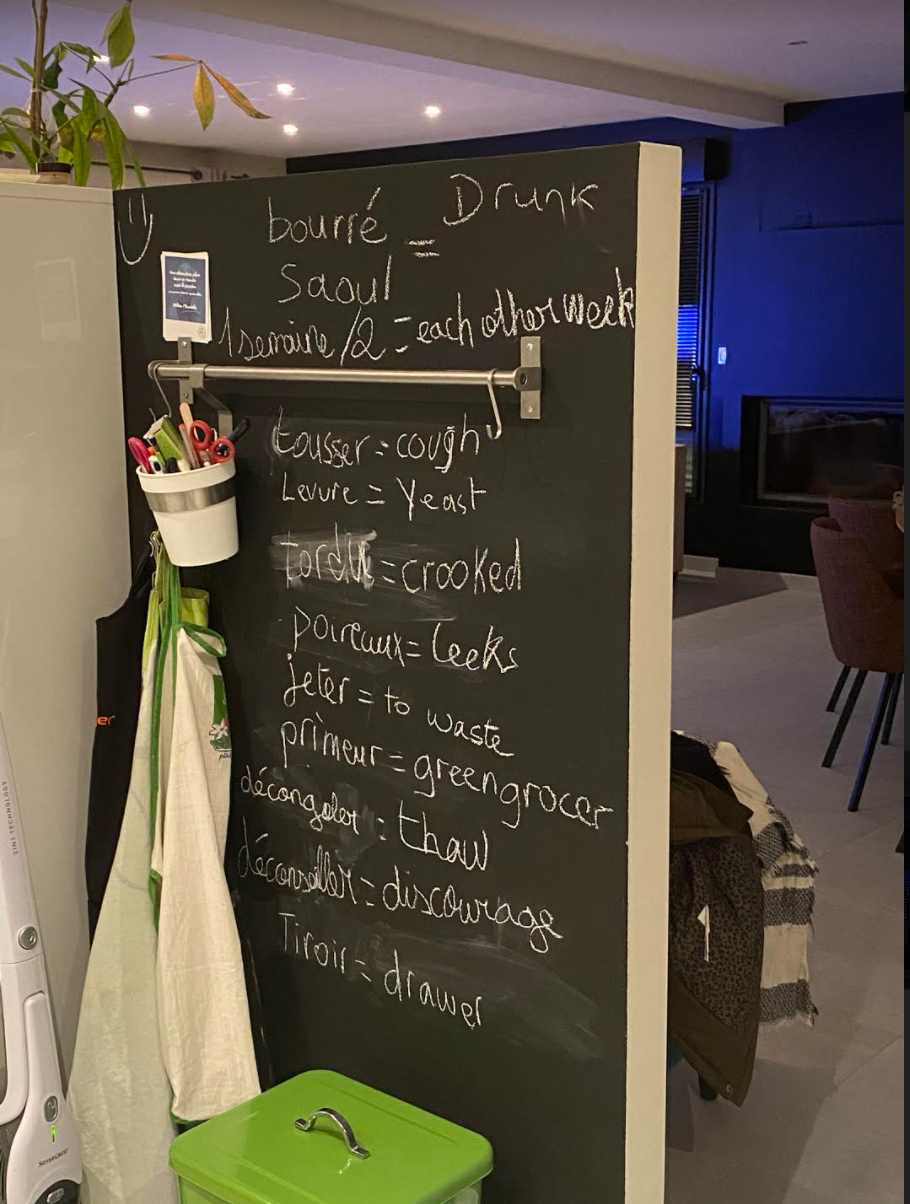 bourré = Drunk
Saoul
1 semaine /2 = each other week
tousser = cough
Levure = Yeast
tordu = crooked
poireaux = leeks
jeter = to waste
primeur = greengrocer
décongeler : thaw
déconseiller = discourage
Tiroir = drawer
er
2IN1 TECHNOLOGY
SILVERCREST